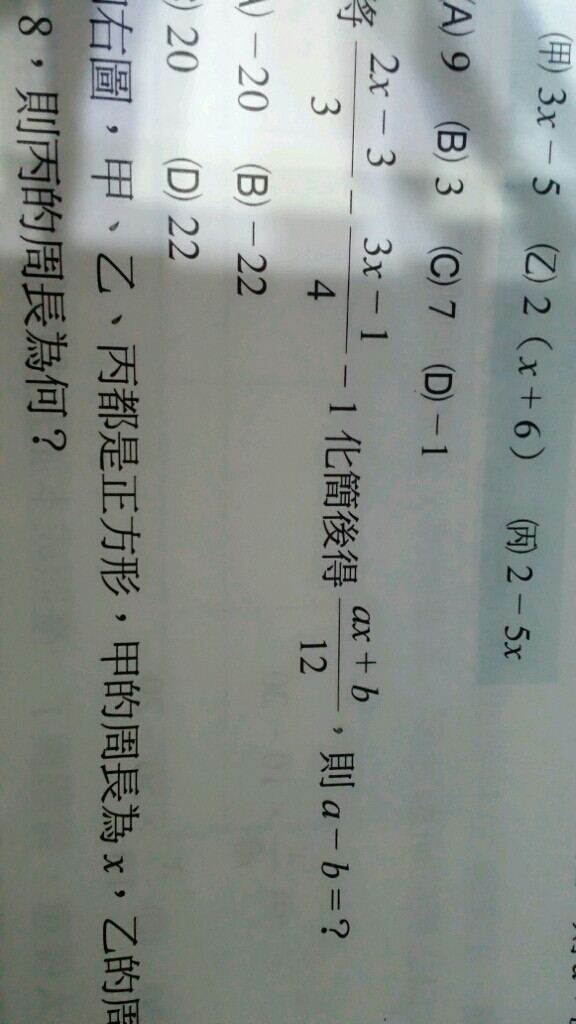 (甲) 3x－5 (乙) 2（x＋6） (丙) 2－5x
(A) 9 (B) 3 (C) 7 (D)－1
將 \frac{2x－3}{3}－\frac{3x－1}{4}－1 化簡後得 \frac{ax＋b}{12}，則 a－b＝？
(A)－20 (B)－22
(C) 20 (D) 22
右圖，甲、乙、丙都是正方形，甲的周長為 x，乙的周
8，則丙的周長為何？